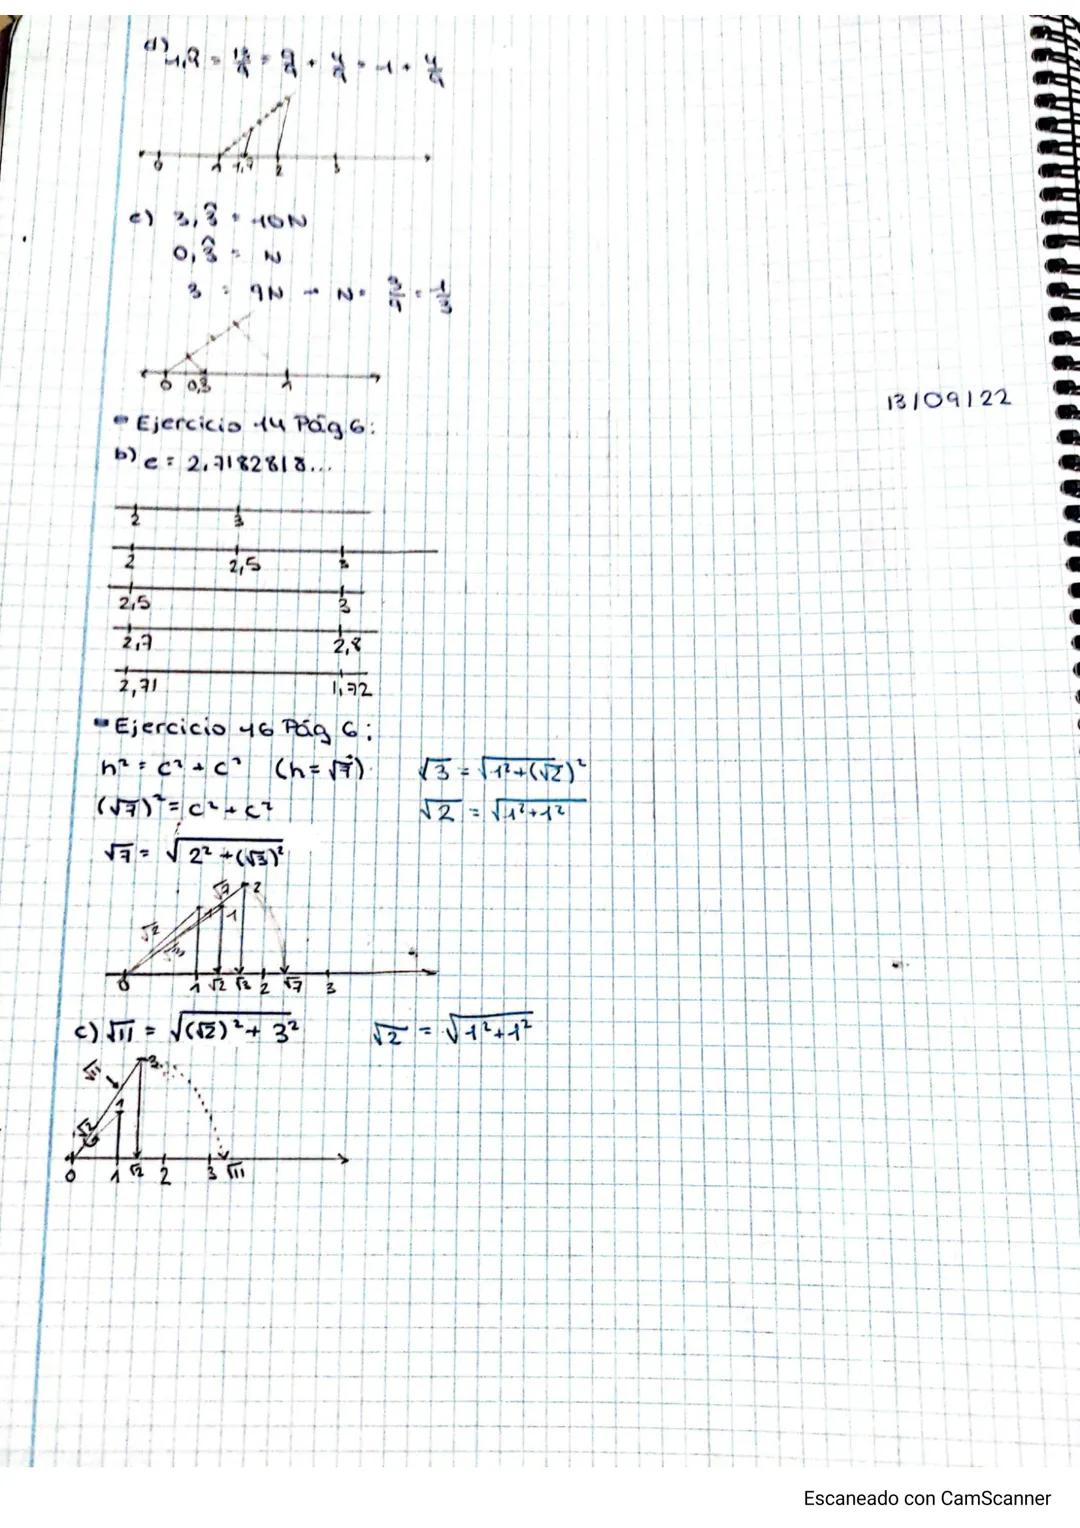 d)
0 1 2 3
c) 3,3̂ = 10N
0,3̂ = N
3 = 9N → N = 3/9 = 1/3
0 0,3 1
13/09/22
Ejercicio 14 Pág 6:
b) e = 2,7182818...
2 3
2 2,5 3
2,5 3
2,7 2,8
2,71 1,72
Ejercicio 16 Pág 6:
h² = c² + c² (h = √7) √3 = √1²+(√2)²
(√7)² = c² + c² √2 = √1²+1²
√7 = √2²+(√3)²
√7 2
√2 1
0 1 √2 √3 2 √7 3
c) √11 = √(√2)²+3² √2 = √1²+1²
√11 3
1
√2
0 1 √2 2 3 √11
Escaneado con CamScanner